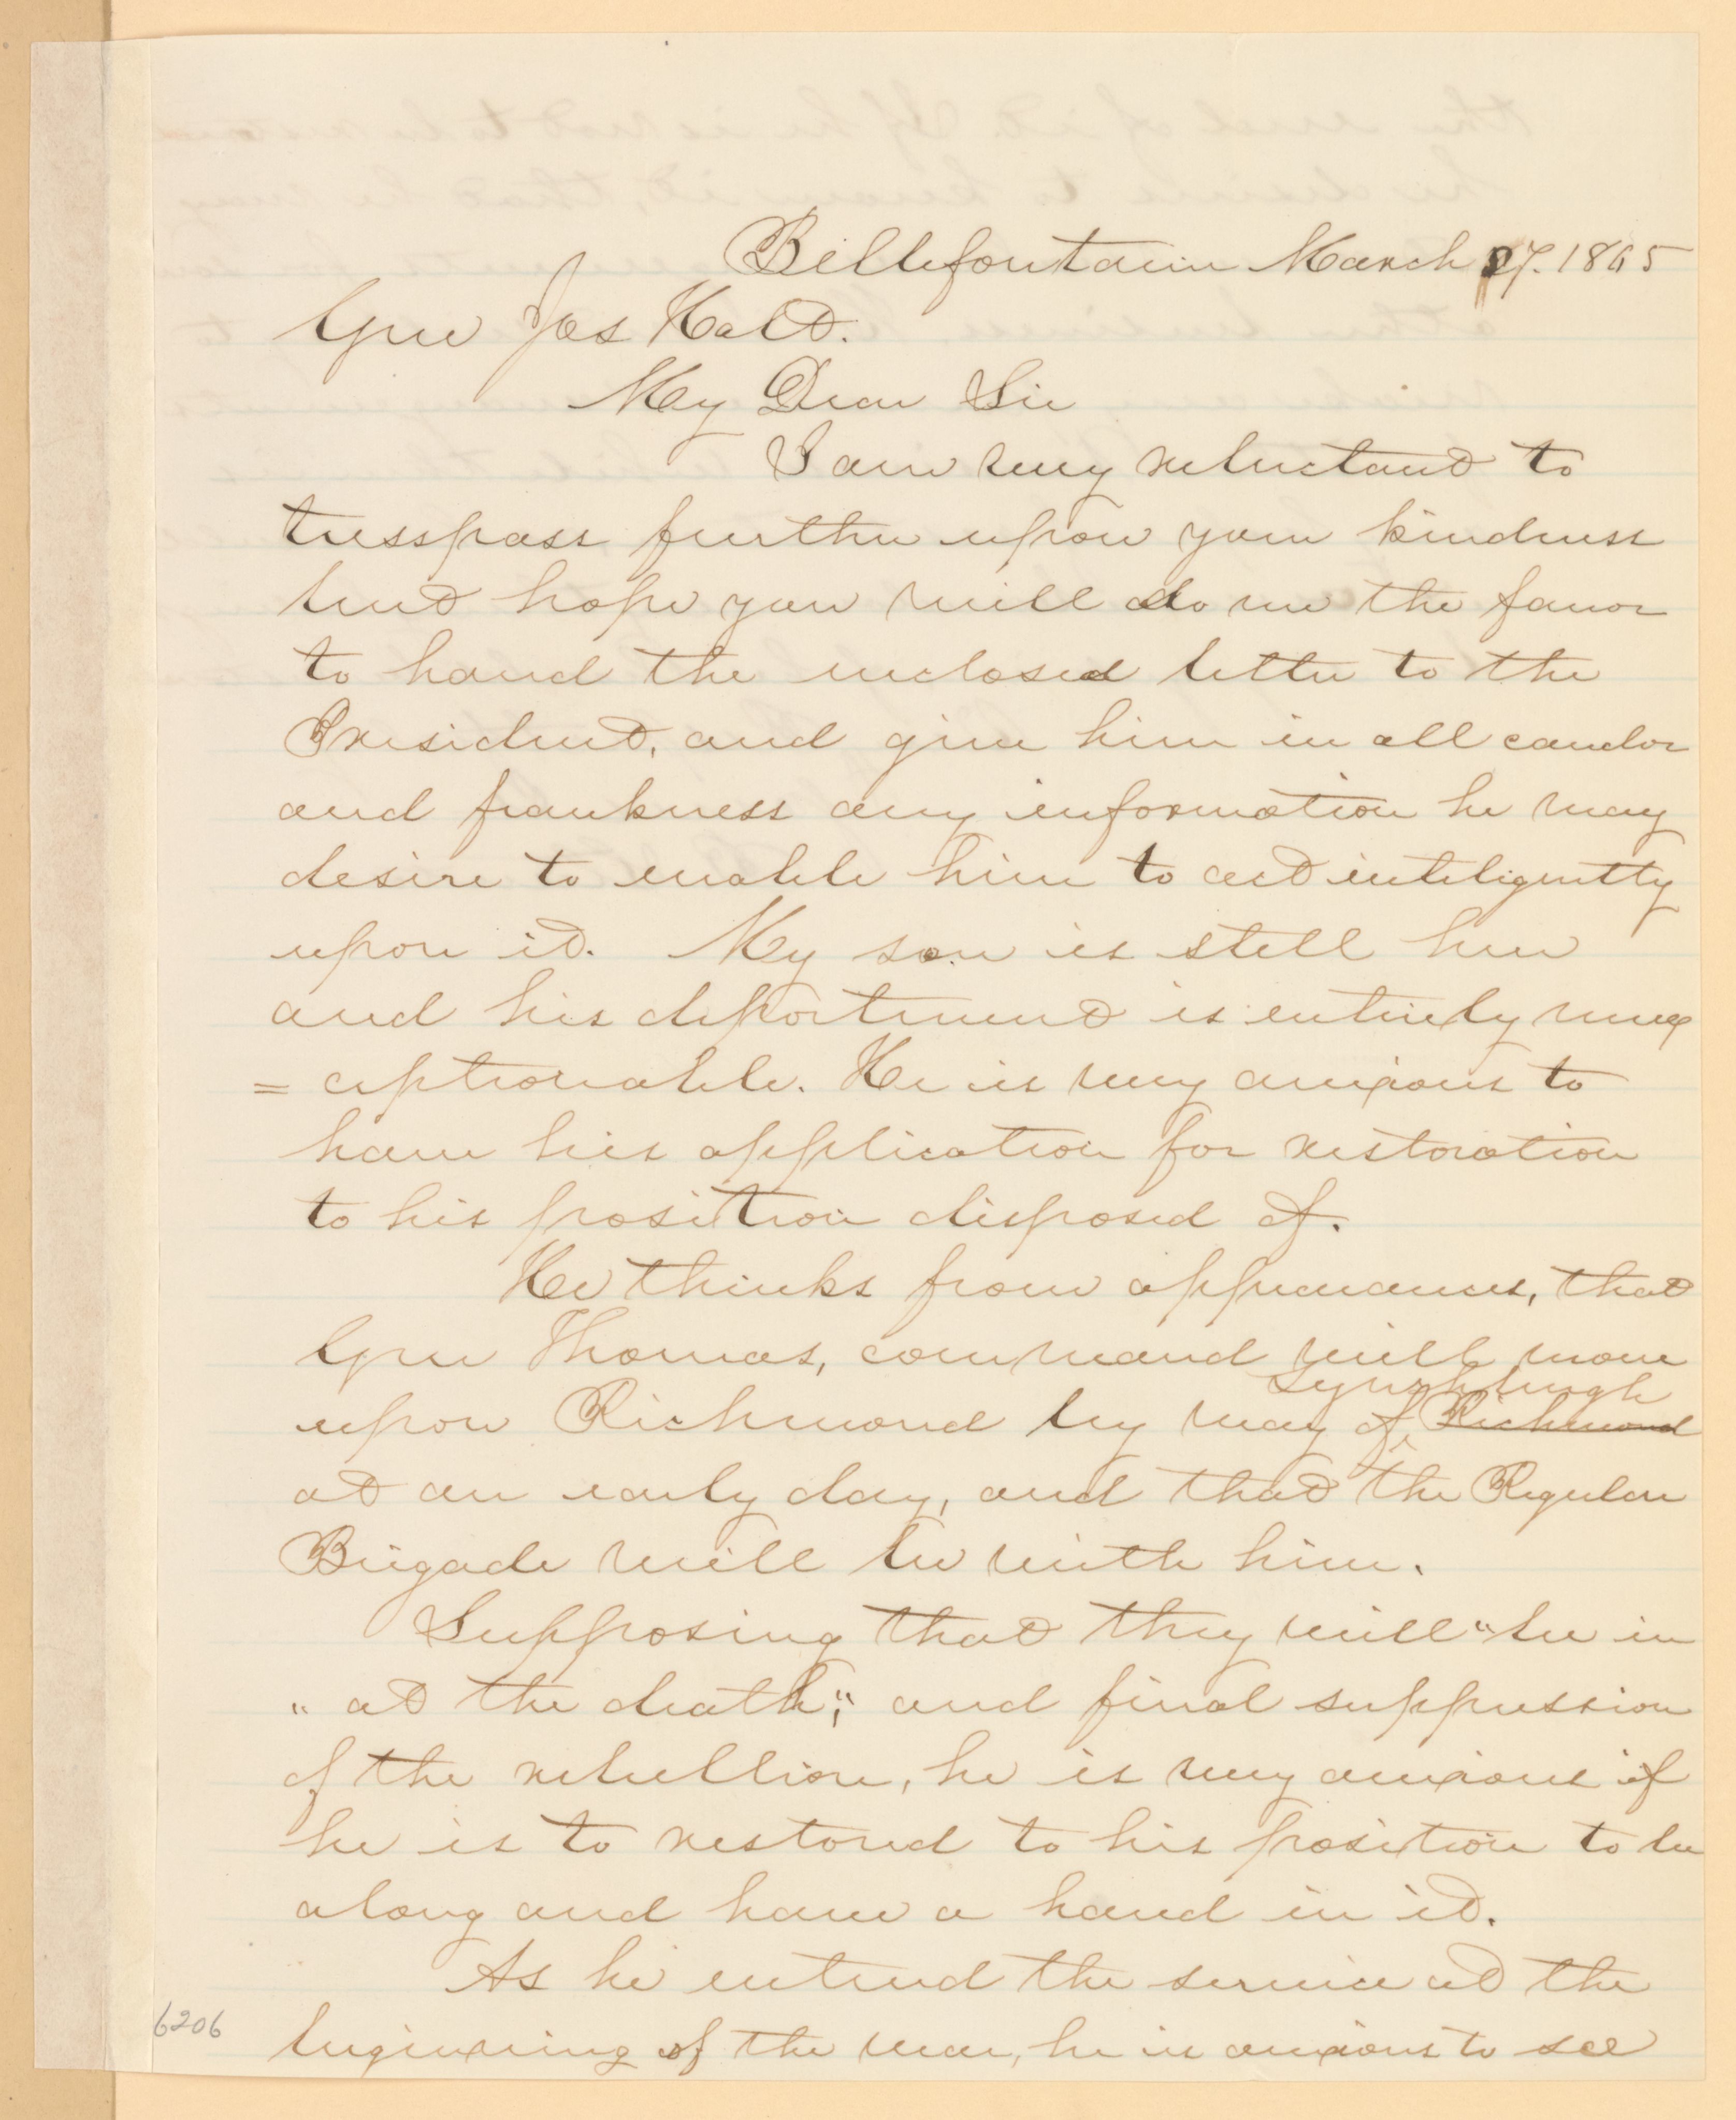 Bellefontain March 27. 1865
Gen Jos Holt.
My Dear Sir
I am very reluctant to
tresspass further upon your kindness
but hope you will do me the favor
to hand the inclosed letter to the
President, and give him in all candor
and frankness any information he may
desire to enable him to act inteligently
upon it. My son is still here
and his deportment is entirely unex
= ceptionable. He is very anxious to
have his application for restoration
to his position disposed of.
He thinks from appearances, that
Gen Thomas, command will move
Lynchburgh
upon Richmond by way of Richmond
at an early day, and that the Regular
Brigade will be with him.
Supposing that they will "be in
" at the death," and final suppression
of the rebellion, he is very anxious if
he is to restored to his position to be
along and have a hand in it.
As he entered the service at the
beginning of the war, he is anxious to see
6206